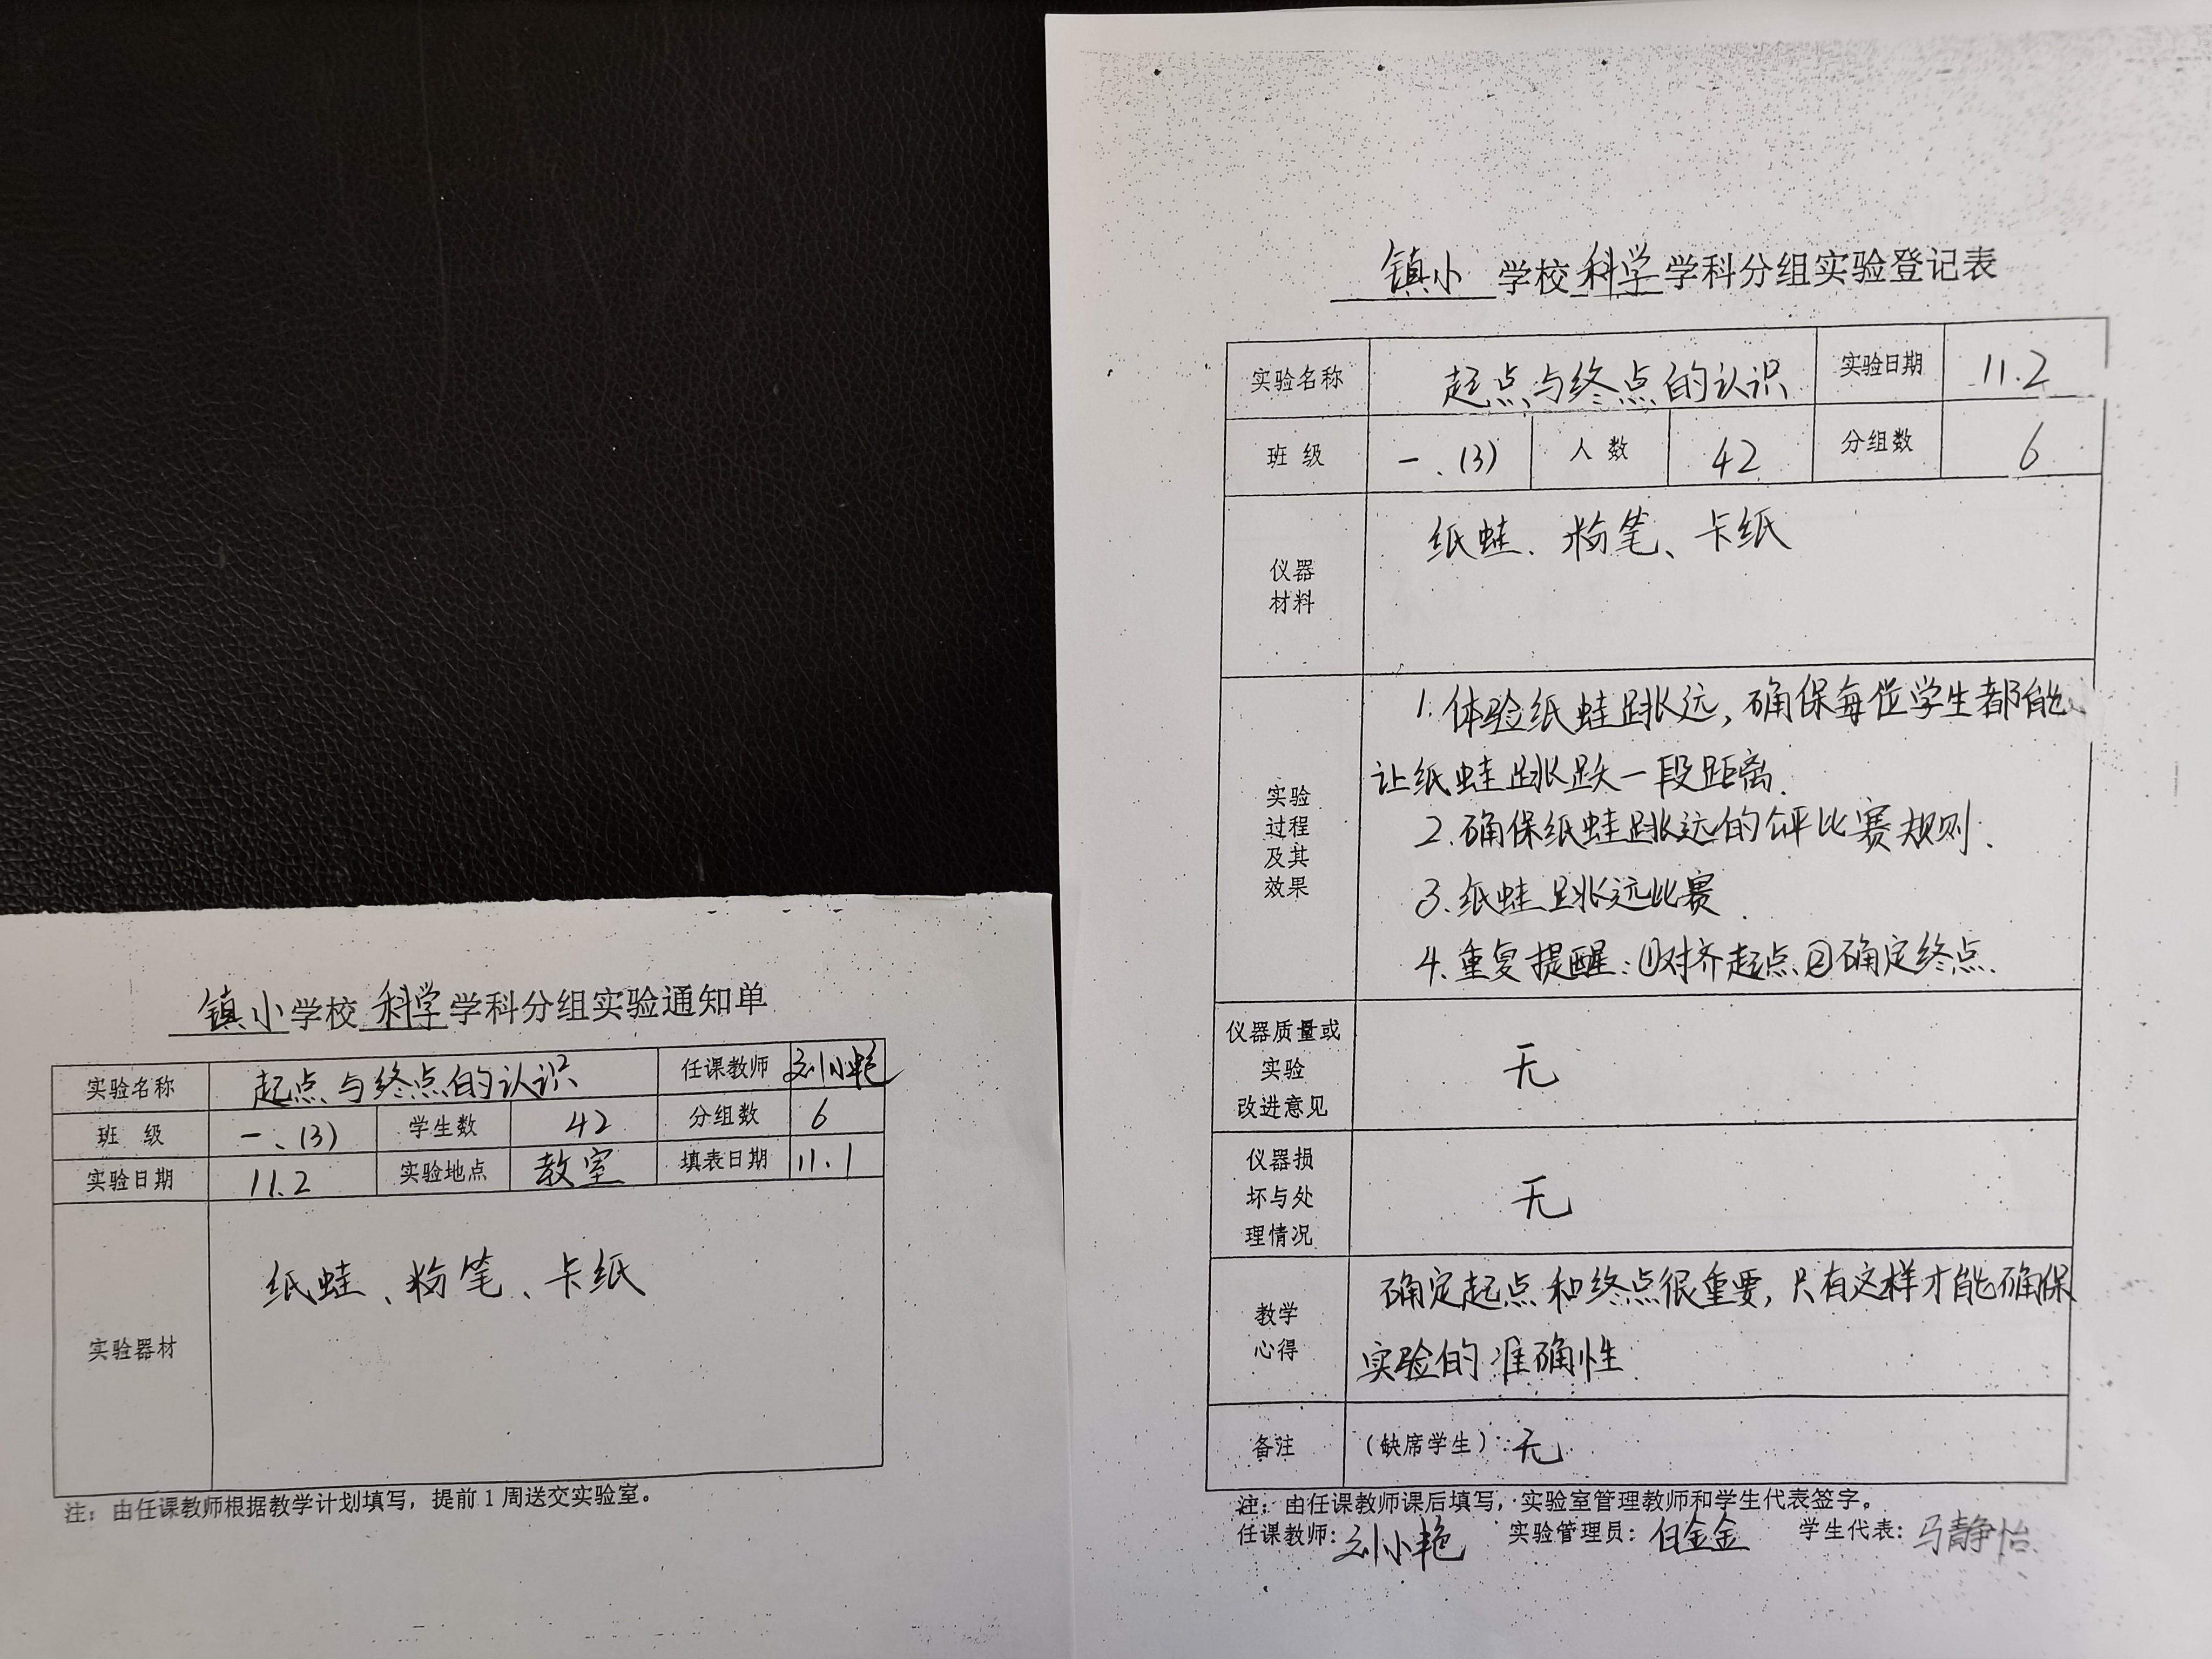 镇小学校科学学科分组实验通知单
实验名称 起点与终点的认识 任课教师 刘小艳
班 级 一、(3) 学生数 42 分组数 6
实验日期 11.2 实验地点 教室 填表日期 11.1
实验器材 纸蛙、粉笔、卡纸
注：由任课教师根据教学计划填写，提前1周送交实验室。
镇小 学校科学学科分组实验登记表
实验名称 起点与终点的认识 实验日期 11.2
班 级 一、(3) 人 数 42 分组数 6
仪器
材料
纸蛙、粉笔、卡纸
实验
过程
及其
效果
1.体验纸蛙跳远,确保每位学生都能
让纸蛙跳跃一段距离.
2.确保纸蛙跳远的公平比赛规则.
3.纸蛙跳远比赛.
4.重复提醒:①对齐起点②确定终点.
仪器质量或
实验
改进意见
无
仪器损
坏与处
理情况
无
教学
心得
确定起点和终点很重要,只有这样才能确保
实验的准确性
备注 （缺席学生）：无
注：由任课教师课后填写，实验室管理教师和学生代表签字。
任课教师：刘小艳 实验管理员：白金金 学生代表：马静怡